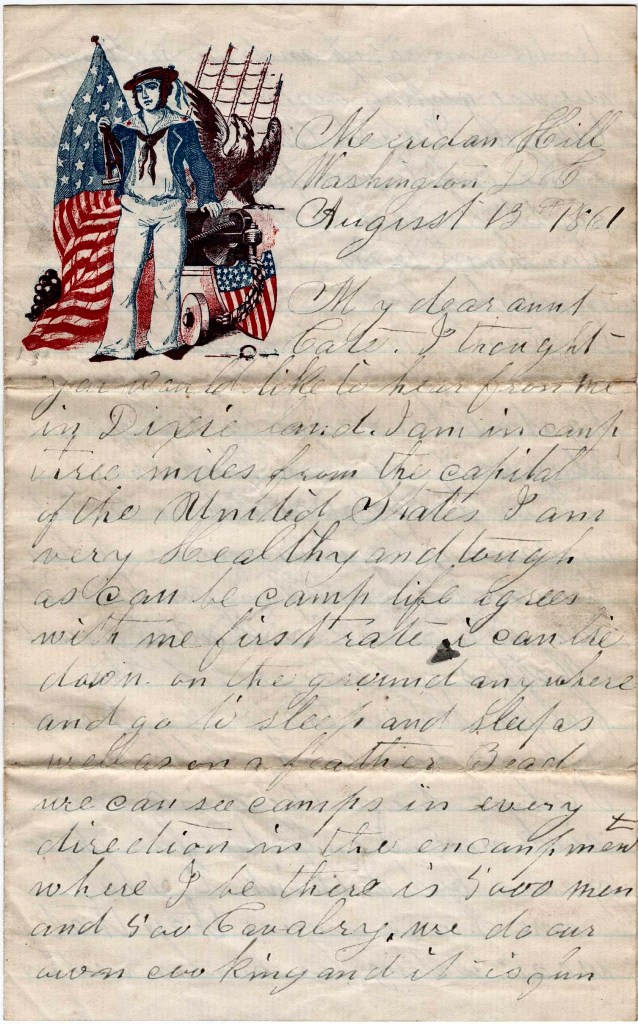 Meridan Hill
Washington D C
August 13th 1861
My dear aunt
Cate. I thought
you would like to hear from me
in Dixie land. I am in camp
three miles from the capital
of the United States I am
very Healthy and tough
as can be camp life agrees
with me first rate i can lie
down on the ground anywhere
and go to sleep and sleep as
well as on a feather Bead
we can see camps in every
direction in the encanpment
where I be there is 5000 men
and 500 Cavalry, we do our
own cooking and it is fun